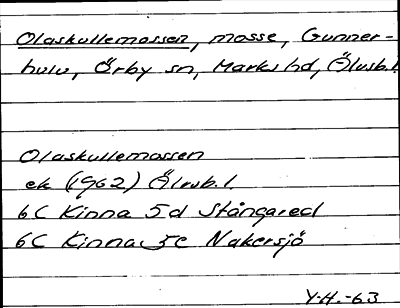 Olaskullemossen, mosse, Gunner-
hulu, Örby sn, Marks hd, Älvsb.l.
Olaskullemossen
ek (1962) Älvsb.l.
6C Kinna 5d Stångared
6C Kinna 5c Nakersjö
Y.H.-63